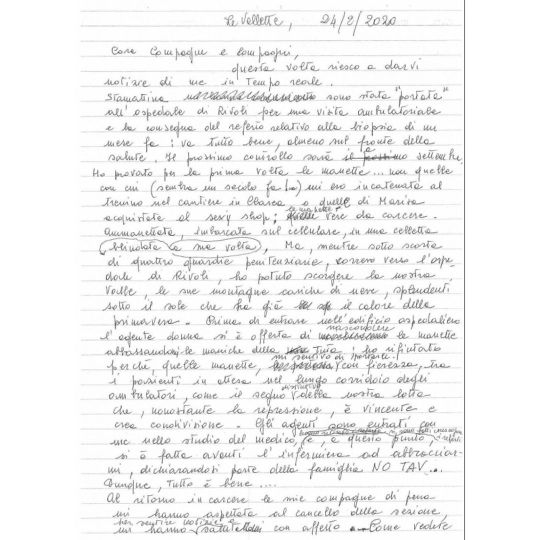 Le Vallette, 24/2/2020
Care Compagne e Compagni,
questa volta riesco a darvi
notizie di me in Tempo reale.
Stamattina sono stata "portata"
all'ospedale di Rivoli per una visita ambulatoriale
e la consegna del referto relativo alla biopsia di un
mese fa: va tutto bene, almeno sul fronte della
salute. Il prossimo controllo sarà a settembre.
Ho provato per la prima volta le manette... non quelle
con cui (sembra un secolo fa) mi ero incatenata al
trenino nel cantiere in Clarea o quelle di Marisa
acquistate al sexy shop; le manette vere da carcere.
Ammanettata, imbarcata sul cellulare, in una celletta
blindata a sua volta, Ma, mentre sotto scorta
di quattro guardie penitenziarie, correvo verso l'ospe-
dale di Rivoli, ho potuto scorgere la nostra
Valle, le sue montagne cariche di neve, splendenti
sotto il sole che ha già il calore della
primavera. Prima di entrare nell'edificio ospedaliero
l'agente donna si è offerta di nascondere le manette
abbassandosi le maniche della tuta: ho rifiutato
perché, quelle manette, mi sentivo di portarle con fierezza, tra
i pazienti in attesa nel lungo corridoio degli
ambulatori, come il segno distintivo della nostra lotta
che, nonostante la repressione, è vincente e
crea condivisione. Gli agenti sono entrati con
me nello studio del medico, e, a questo punto,
si è fatta avanti l'infermiera ad abbracciar-
mi, dichiarandosi parte della famiglia NO TAV...
Dunque, tutto è bene....
Al ritorno in carcere le mie compagne di pena
mi hanno aspettata al cancello della sezione,
per sentire notizie e
mi hanno con affetto. Come vedete